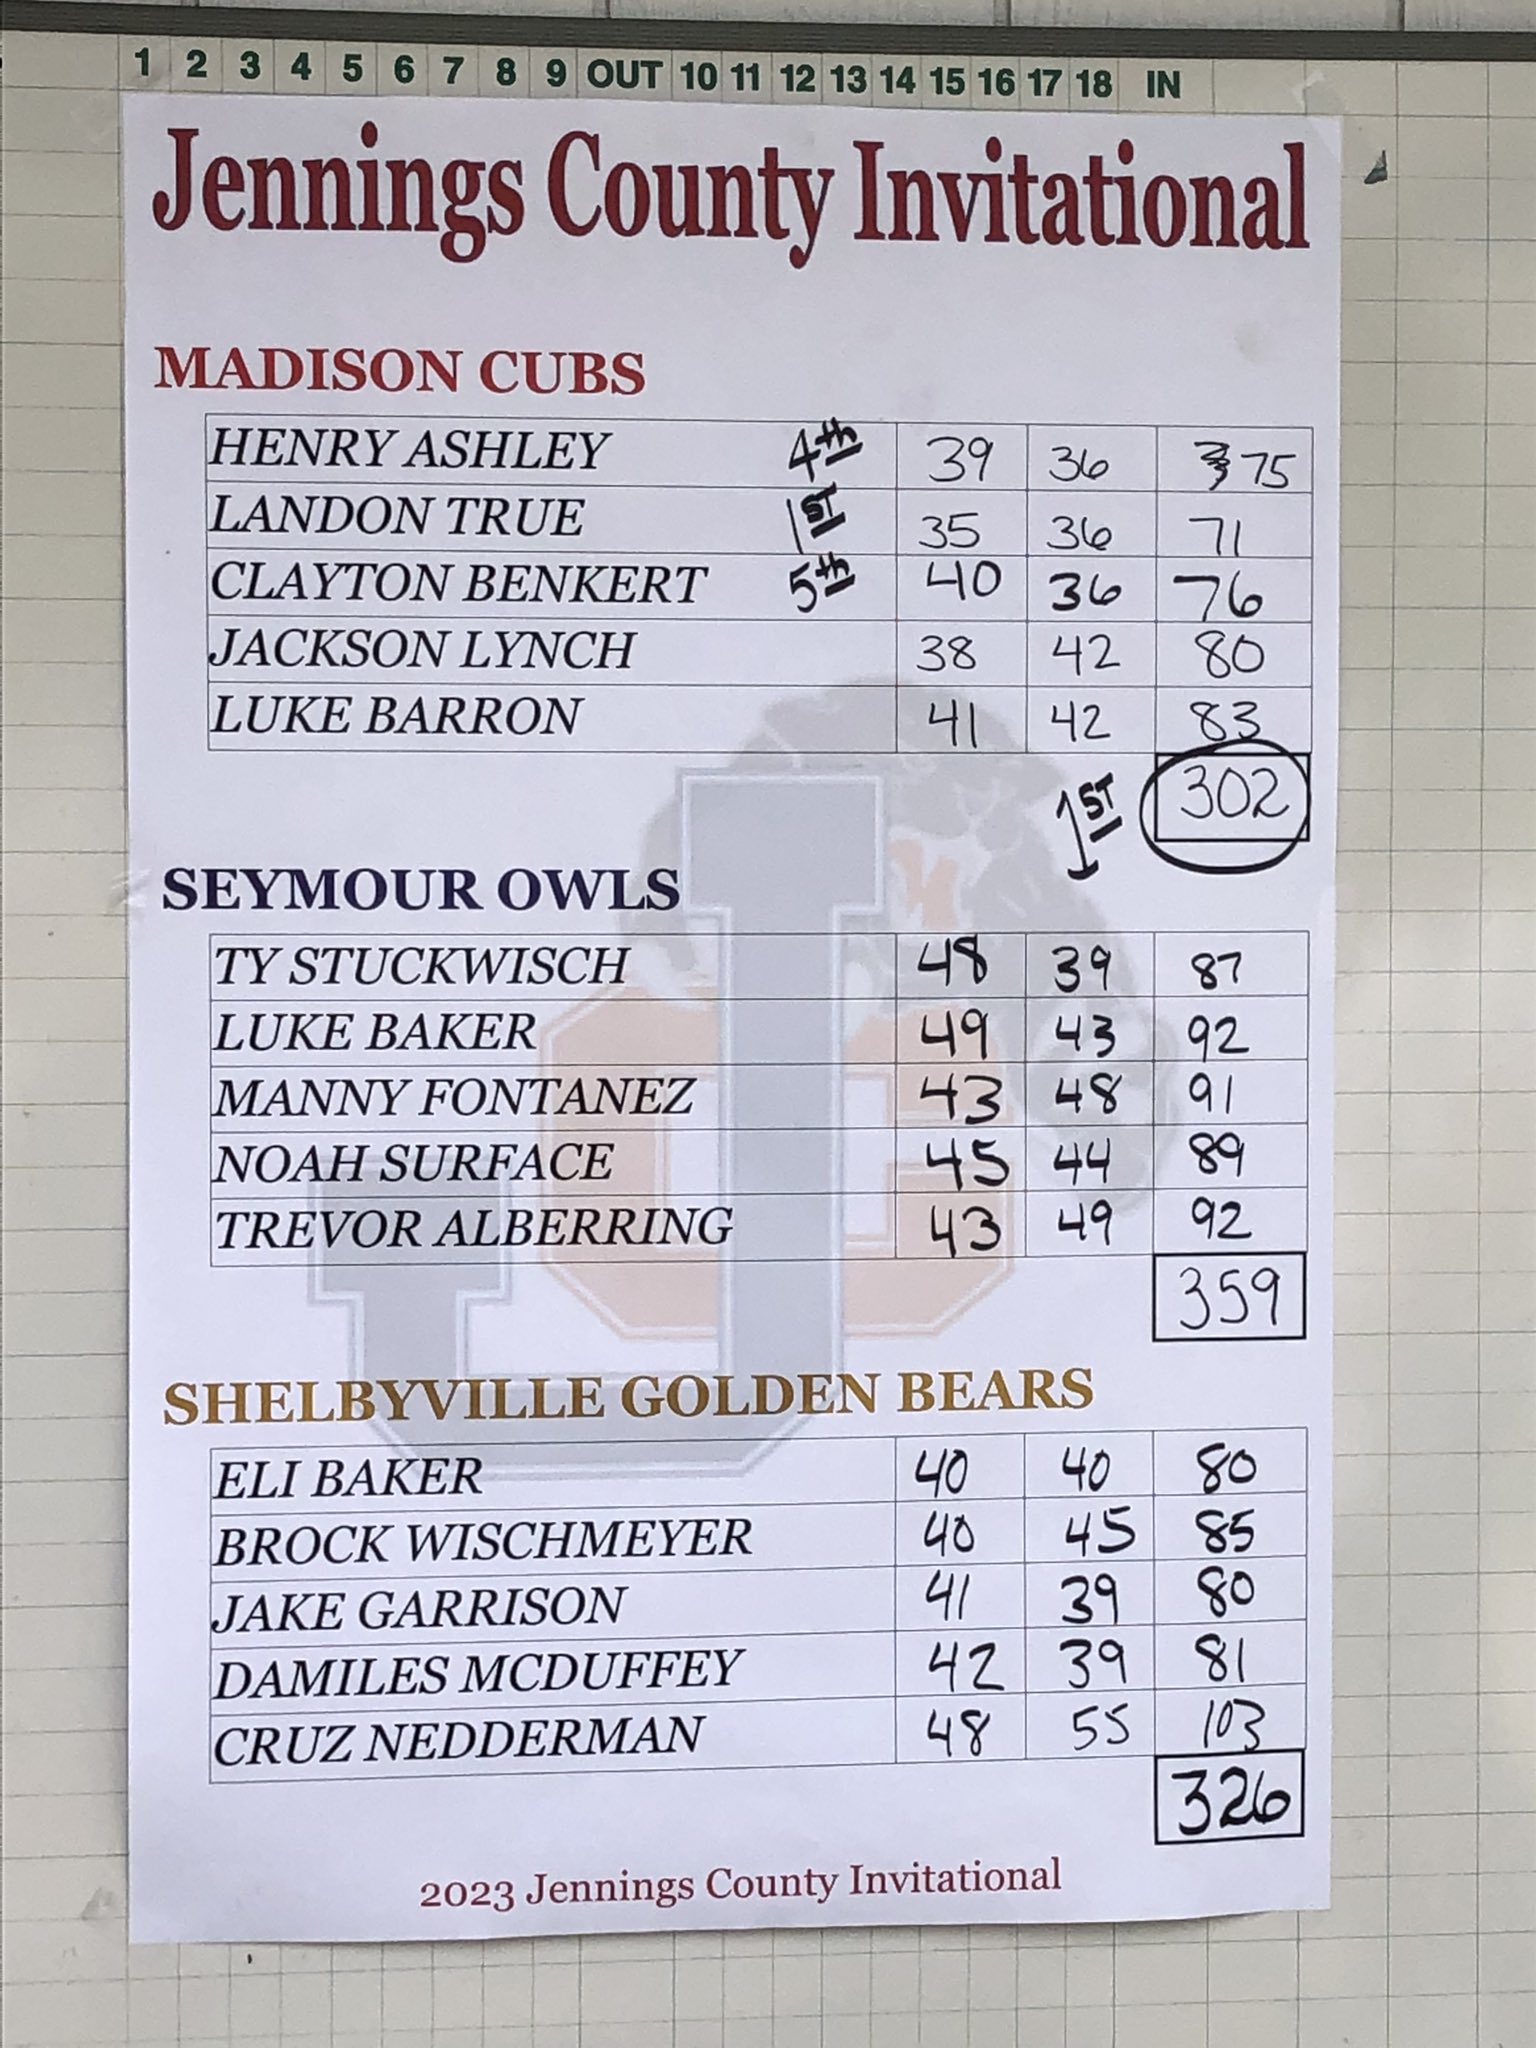 1 2 3 4 5 6 7 8 9 OUT 10 11 12 13 14 15 16 17 18 IN
Jennings County Invitational
MADISON CUBS
HENRY ASHLEY 4th 39 36 75
LANDON TRUE 1ST 35 36 71
CLAYTON BENKERT 5th 40 36 76
JACKSON LYNCH 38 42 80
LUKE BARRON 41 42 83
1ST 302
SEYMOUR OWLS
TY STUCKWISCH 48 39 87
LUKE BAKER 49 43 92
MANNY FONTANEZ 43 48 91
NOAH SURFACE 45 44 89
TREVOR ALBERRING 43 49 92
359
SHELBYVILLE GOLDEN BEARS
ELI BAKER 40 40 80
BROCK WISCHMEYER 40 45 85
JAKE GARRISON 41 39 80
DAMILES MCDUFFEY 42 39 81
CRUZ NEDDERMAN 48 55 103
326
2023 Jennings County Invitational